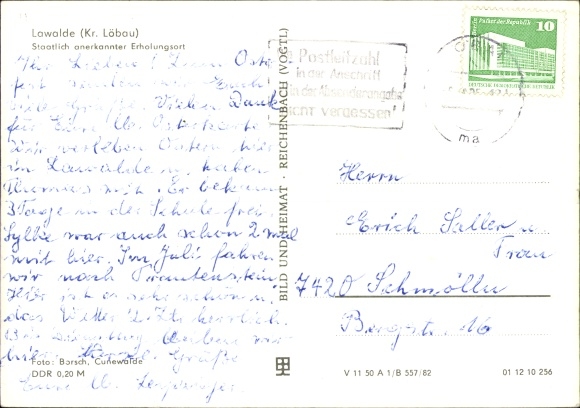 Lawalde (Kr. Löbau)
Staatlich anerkannter Erholungsort
Ihr Lieben! Zum Oster
fest
Vielen Dank
für Eure lb. Osterkarte
Wir verleben Ostern hier
in Lawalde u. haben
Thomas mit. Er bekam
3 Tage in der Schule frei.
Sylke war auch schon 2 mal
mit hier. Im Juli fahren
wir nach Frauenstein
Hier ist es sehr schön u.
das Wetter z. Zt. herrlich.
Bis
hier. Grüße
Eure
Foto: Barsch, Cunewalde
DDR 0,20 M
BILD UND HEIMAT · REICHENBACH (VOGTL)
Postleitzahl
in der Anschrift
in der Absenderangabe
nicht vergessen
Berlin, Palast der Republik
10
DEUTSCHE DEMOKRATISCHE REPUBLIK
ma
Herrn
Erich Saller u.
Frau
7420 Schmölln
Bergstr. 16
V 11 50 A 1/B 557/82
01 12 10 256